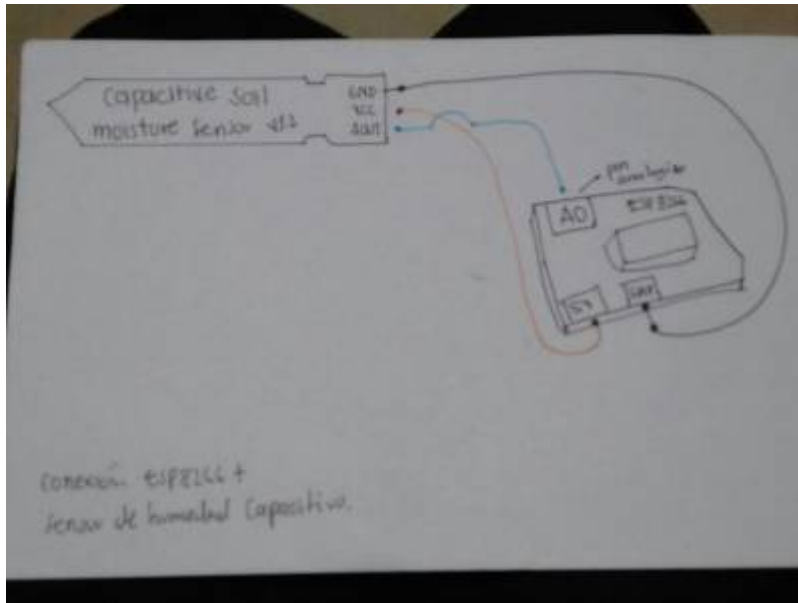 Capacitive Soil
moisture Sensor
GND
VCC
AOUT
pin
A0
ESP8266
5V
GND
Conexión ESP8266 +
Sensor de humedad Capacitivo.